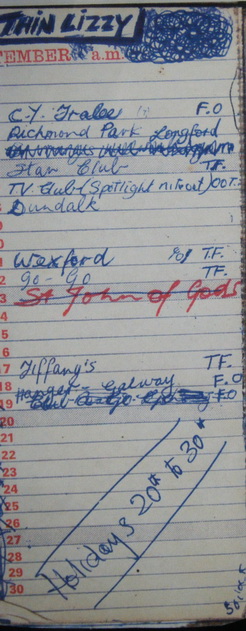 THIN LIZZY
TEMBER a.m.
C.Y. Tralee F.O
Richmond Park Longford
Stan Club T.F.
TV Club (Spotlight nite out) OO T.
Dundalk
1 Wexford 80/ T.F.
2 Go-Go TF.
3 St John of Gods
4
5
6
17 Tiffany's TF.
18 Hanger - Galway F.O
19 Club A Go Go F.O
20
21
22
23
24
25
26
27
28
29
30
Holidays 20th to 30th